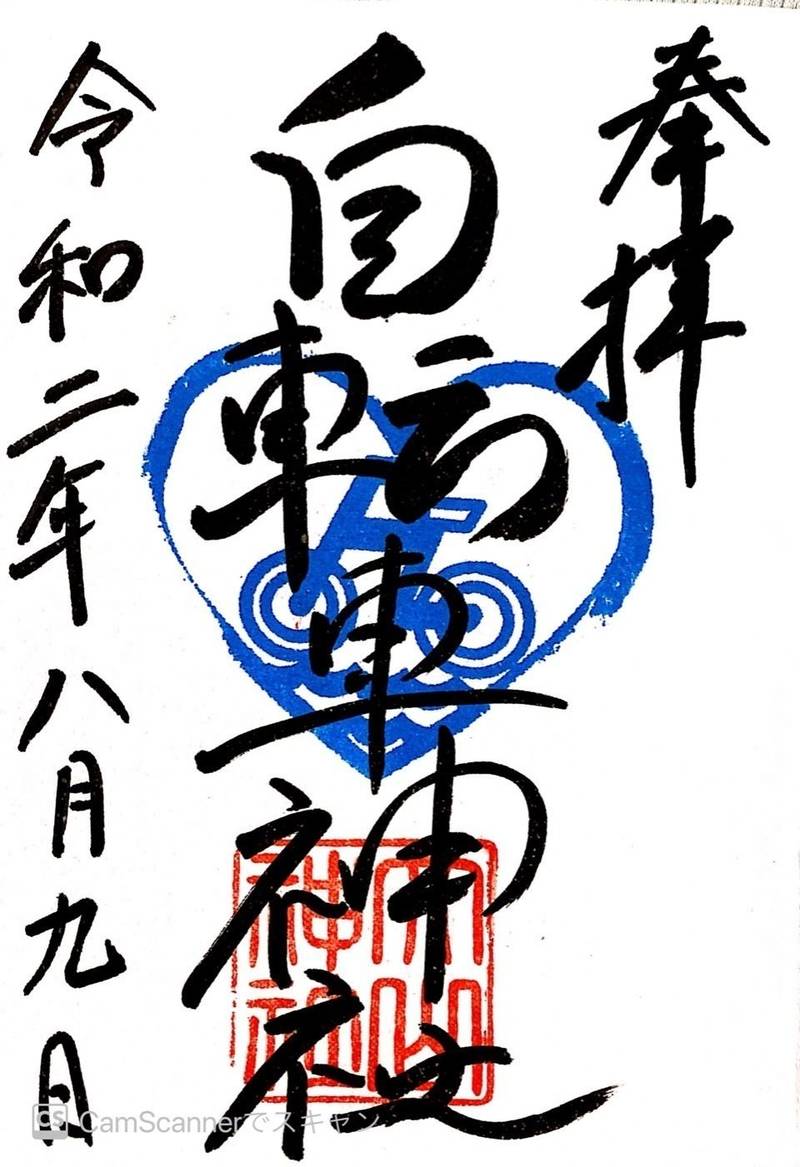 奉拝
自転車神社
令和二年八月九日
大山神社
CamScannerでスキャン